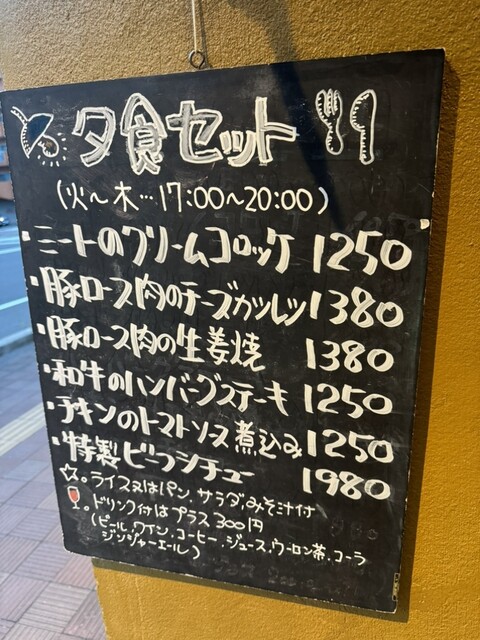 夕食セット
(火～木…17:00～20:00)
・ミートのクリームコロッケ 1250
・豚ロース肉のチーズカツレツ 1380
・豚ロース肉の生姜焼 1380
・和牛のハンバーグステーキ 1250
・チキンのトマトソース煮込み 1250
・特製ビーフシチュー 1980
☆。ライス又はパン、サラダ、みそ汁付
。ドリンク付はプラス300円
(ビール、ワイン、コーヒー、ジュース、ウーロン茶、コーラ
ジンジャーエール)